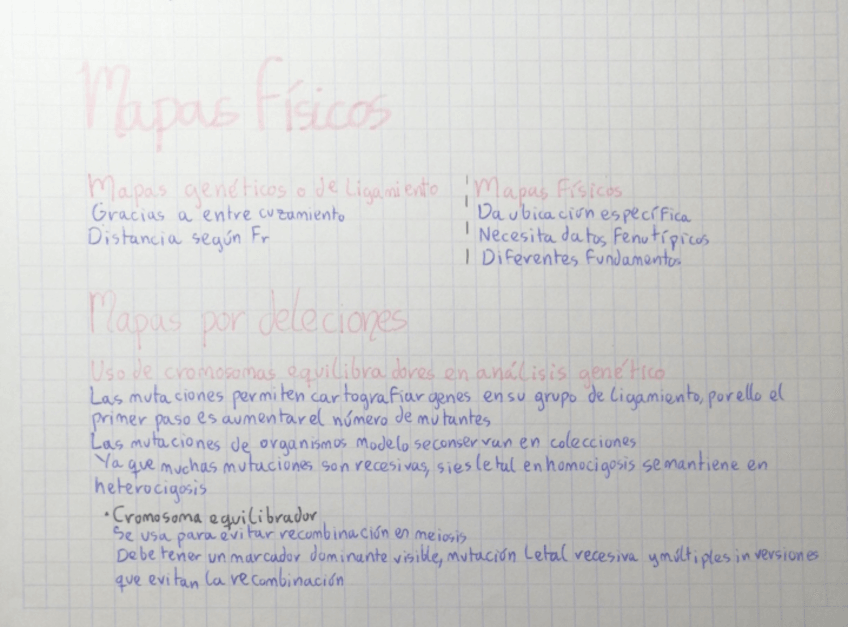 Mapas físicos
Mapas genéticos o de Ligamiento
Gracias a entrecuzamiento
Distancia según Fr
Mapas Físicos
Da ubicación específica
Necesita datos fenotípicos
Diferentes fundamentos
Mapas por deleciones
Uso de cromosomas equilibradores en análisis genético
Las mutaciones permiten cartografiar genes en su grupo de ligamiento, por ello el
primer paso es aumentar el número de mutantes
Las mutaciones de organismos modelo se conservan en colecciones
Ya que muchas mutaciones son recesivas, si es letal en homocigosis se mantiene en
heterocigosis
·Cromosoma equilibrador
Se usa para evitar recombinación en meiosis
Debe tener un marcador dominante visible, mutación Letal recesiva y múltiples inversiones
que evitan la recombinación